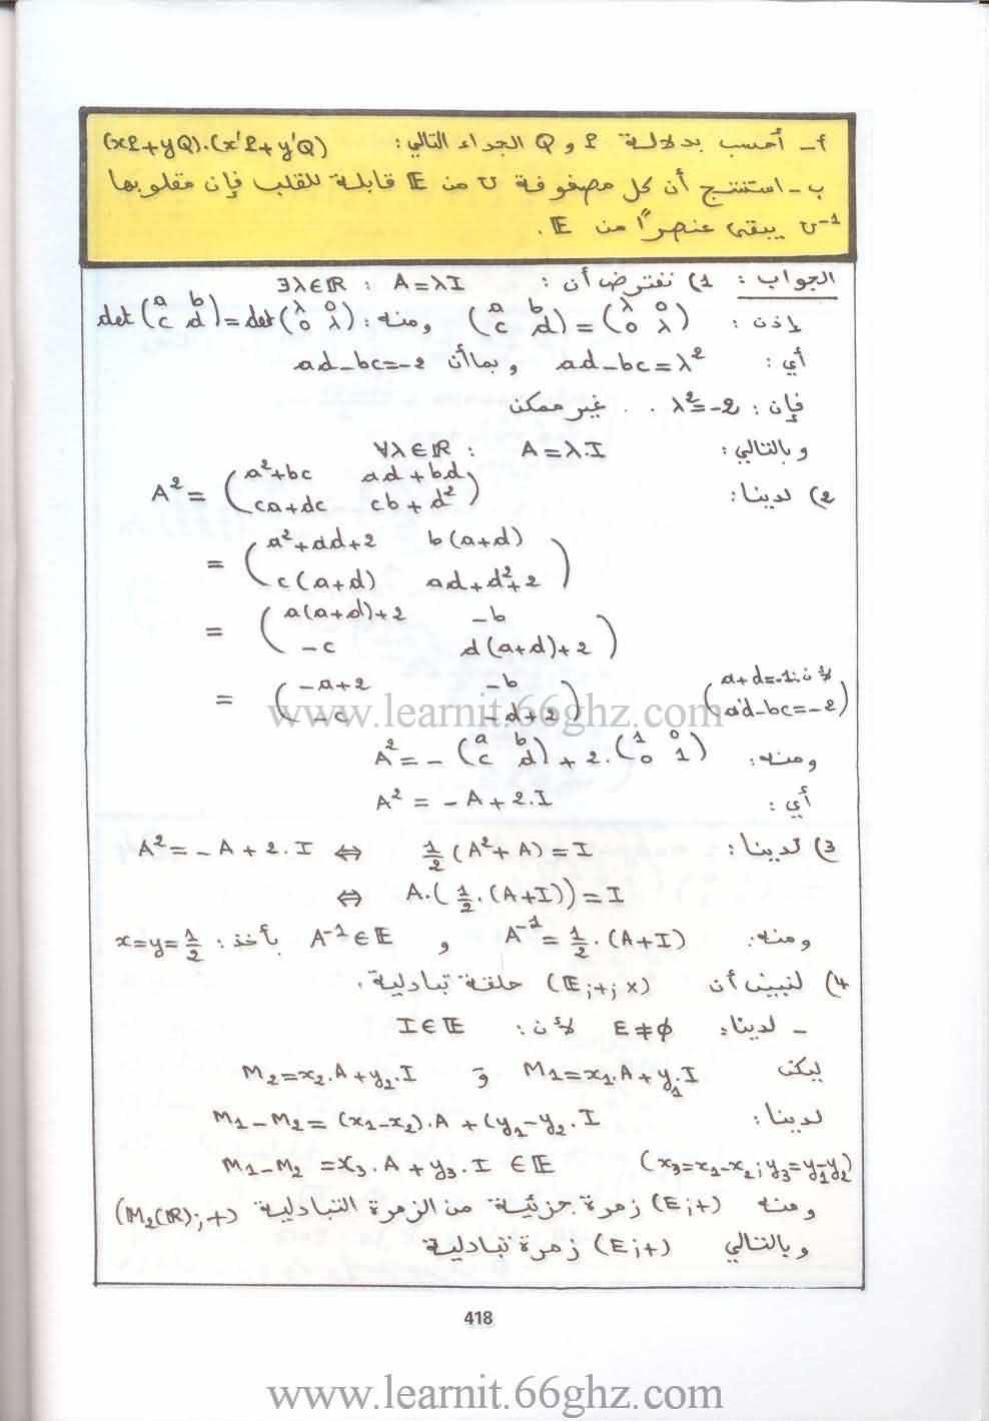 أ- أحسب بدلالة P و Q الجداء التالي: (xP+yQ).(x'P+y'Q)
ب- استنتج أن كل مصفوفة U من E قابلة للقلب فإن مقلوبها
U⁻¹ يبقى عنصرًا من E.
الجواب: 1) نفترض أن: ∃λ∈ℝ : A=λI
إذن: (a b / c d) = (λ 0 / 0 λ) ومنه: det(a b / c d) = det(λ 0 / 0 λ)
أي: ad-bc=λ² وبما أن ad-bc=-2
فإن: λ²=-2 .. غير ممكن
وبالتالي: ∀λ∈ℝ : A=λ.I
2) لدينا: A² = (a²+bc ad+bd / ca+dc cb+d²)
= (a²+ad+2 b(a+d) / c(a+d) ad+d²+2)
= (a(a+d)+2 -b / -c d(a+d)+2)
= (-a+2 -b / -c -d+2) (لأن: a+d=-1 / ad-bc=-2)
www.learnit.66ghz.com
ومنه: A² = -(a b / c d) + 2.(1 0 / 0 1)
أي: A² = -A+2.I
3) لدينا: A²=-A+2.I ⇔ ½(A²+A)=I
⇔ A.(½.(A+I))=I
ومنه: A⁻¹=½.(A+I) و A⁻¹∈E بأخذ: x=y=½
4) لنبين أن (E;+;×) حلقة تبادلية.
- لدينا: E≠∅ لأن: I∈E
ليكن M₁=x₁.A+y₁.I و M₂=x₂.A+y₂.I
لدينا: M₁-M₂=(x₁-x₂).A+(y₁-y₂.I
M₁-M₂=x₃.A+y₃.I ∈E (x₃=x₁-x₂; y₃=y₁-y₂)
ومنه (E;+) زمرة جزئية من الزمرة التبادلية (M₂(ℝ);+)
وبالتالي (E;+) زمرة تبادلية
418
www.learnit.66ghz.com